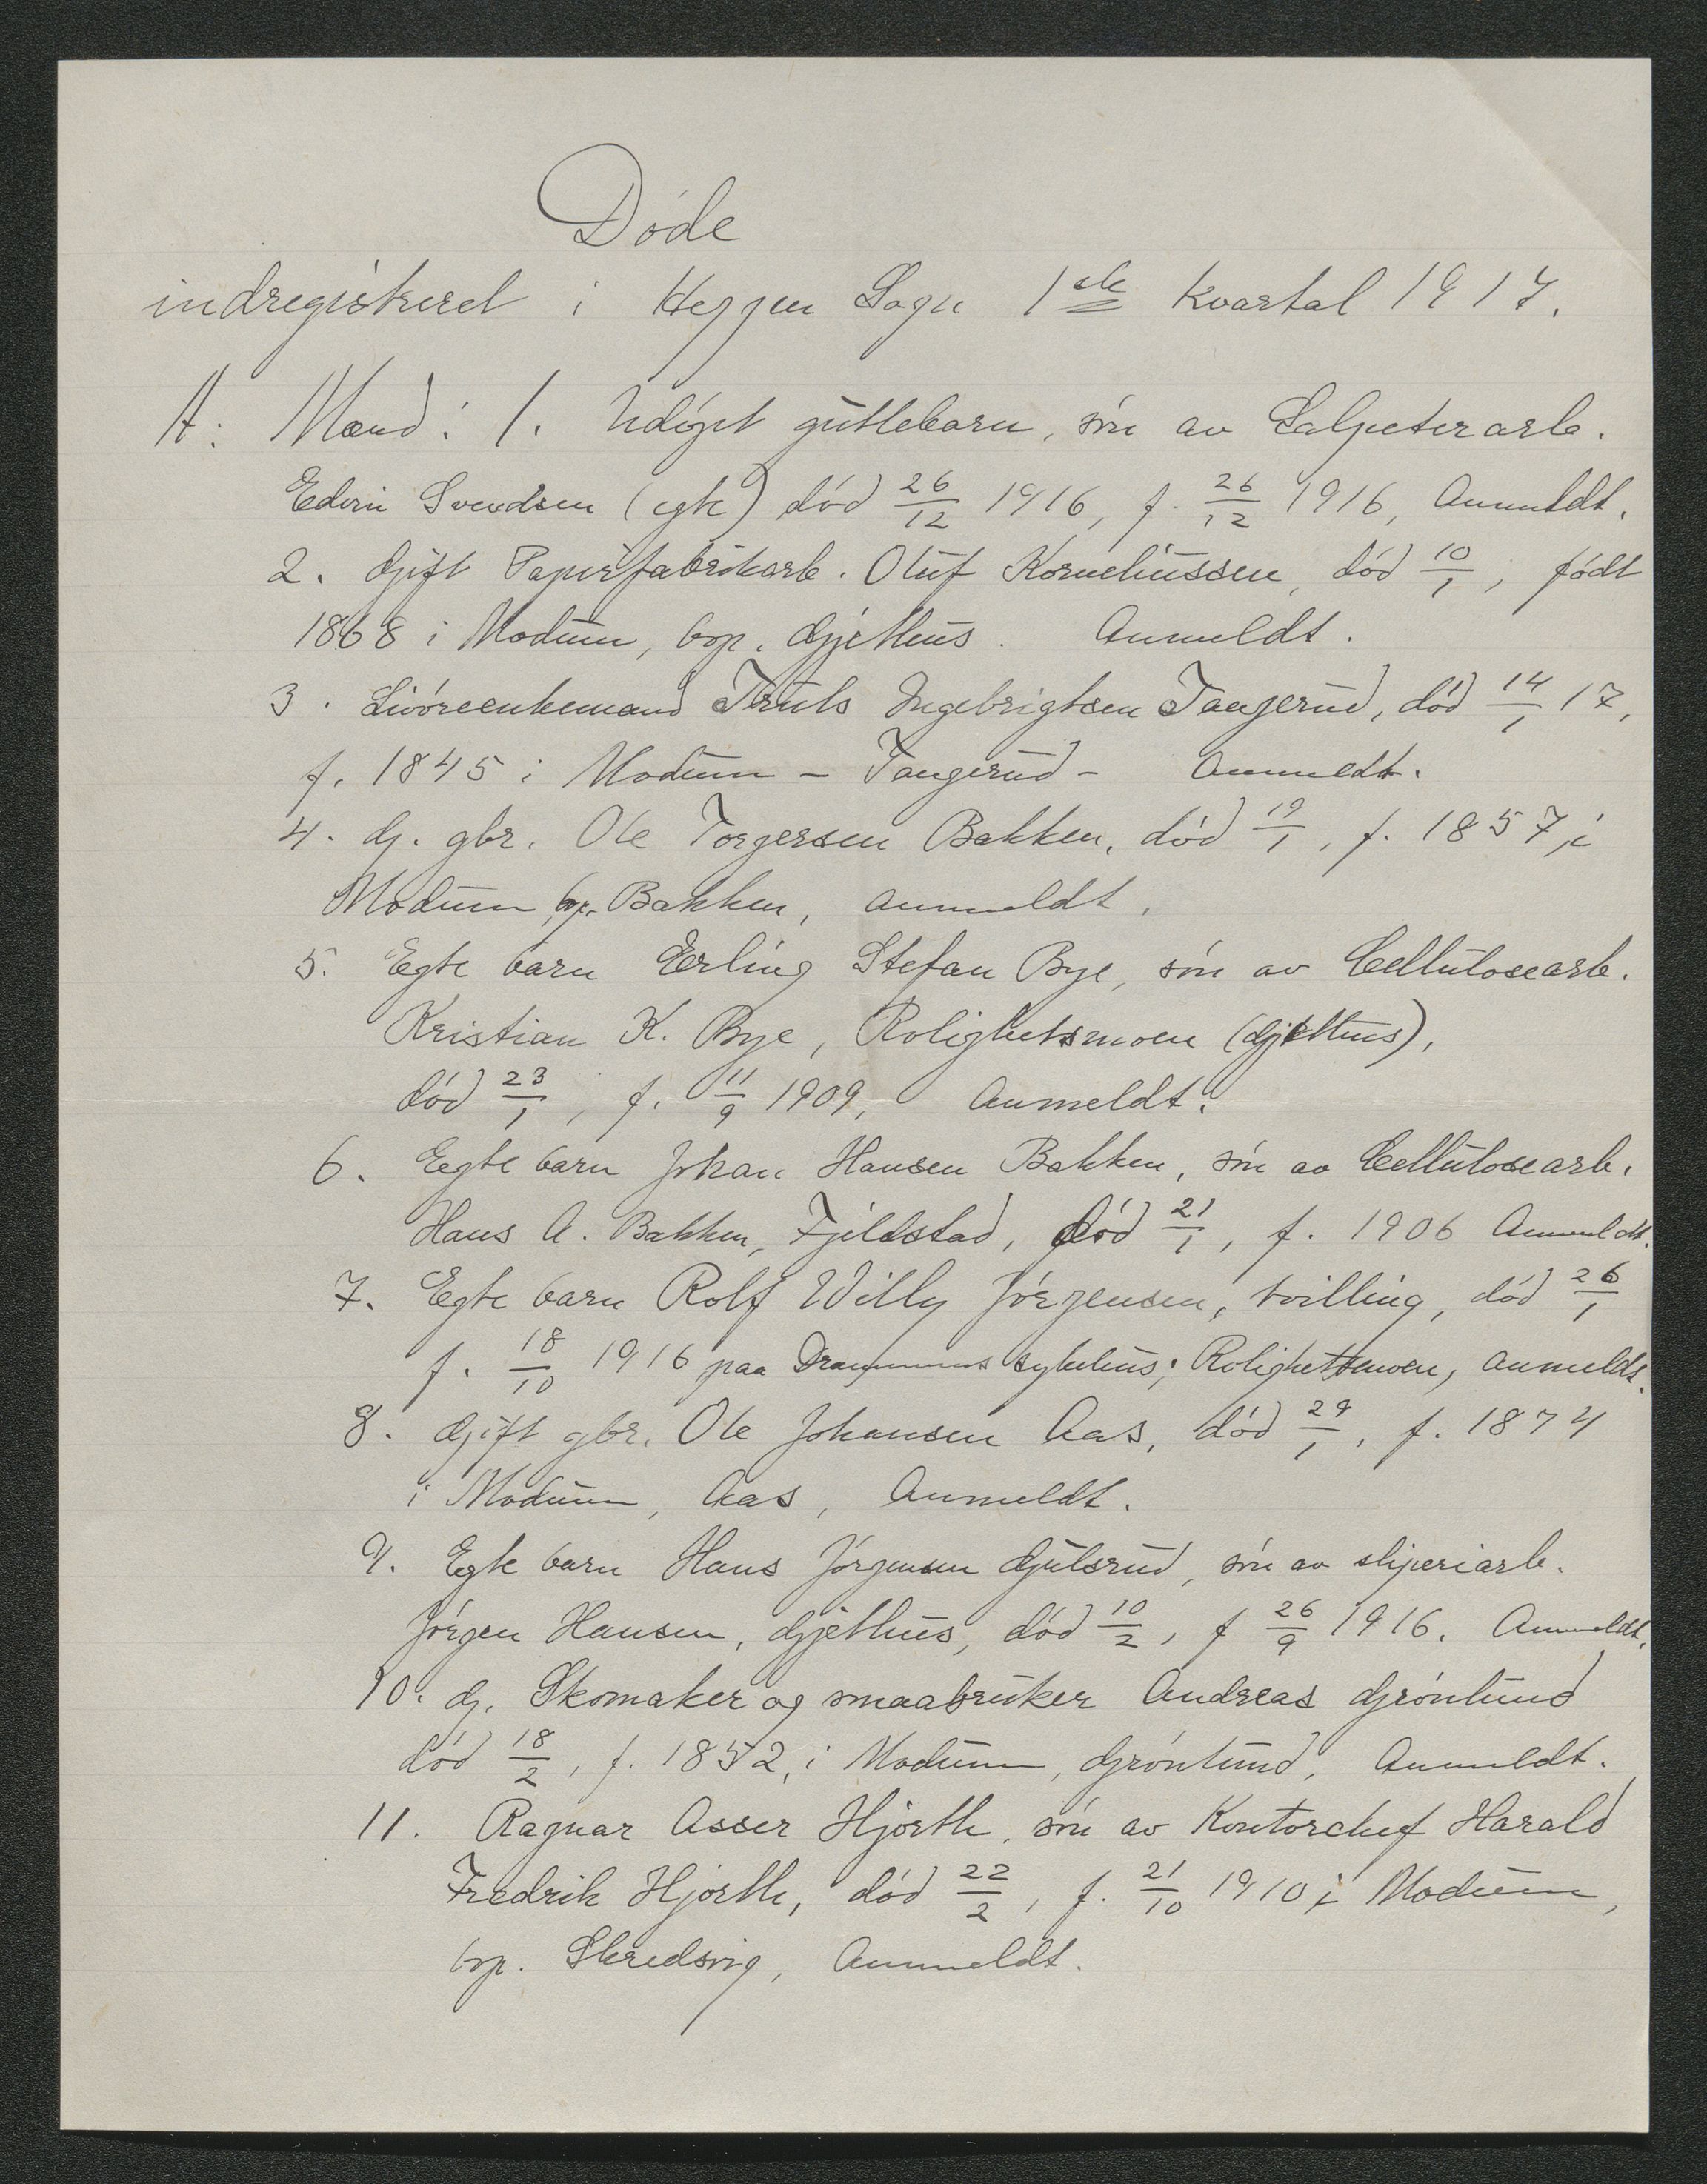 Døde
indregistreret i Heggen Sogn 1ste Kvartal 1917.
A: Mænd: 1. Udøpt guttebarn, søn av Salpeterarb.
Edvin Svendsen (egte) død 26/12 1916, f. 26/12 1916, Anmeldt.
2. Gift Papirfabrikarb. Oluf Korneliussen, død 10/1, født
1868 i Modum, bop. Gjethus. Anmeldt.
3. Livøreenkemand Truls Ingebrigtsen Tangerud, død 14/1 17,
f. 1845 i Modum – Tangerud – Anmeldt.
4. G. gbr. Ole Torgersen Bakken, død 19/1, f. 1857 i
Modum bop. Bakken, anmeldt.
5. Egte barn Erling Stefan Bye, søn av Cellulosearb.
Kristian K. Bye, Rolighetsmoen (Gjethus),
død 23/1, f. 11/9 1909, Anmeldt.
6. Egte barn Johan Hansen Bakken, søn av Cellulosearb.
Hans A. Bakken, Fjeldstad, død 21/1, f. 1906 Anmeldt.
7. Egte barn Rolf Willy Jørgensen, tvilling, død 26/1
f. 18/10 1916 paa Drammens sykehus; Rolighetsmoen, anmeldt.
8. Gift gbr. Ole Johansen Aas, død 29/1, f. 1874
i Modum, Aas, Anmeldt.
9. Egte barn Hans Jørgensen Gulsrud, søn av sliperiarb.
Jørgen Hansen, Gjethus, død 10/2, f 26/9 1916. Anmeldt.
10. G. Skomaker og smaabruker Andreas Grønlund
død 18/2, f. 1852, i Modum, Grønlund, Anmeldt.
11. Ragnar Asser Hjorth, søn av Kontorchef Harald
Fredrik Hjorth, død 22/2, f. 21/10 1910 i Modum,
bop. Skredsvig, Anmeldt.